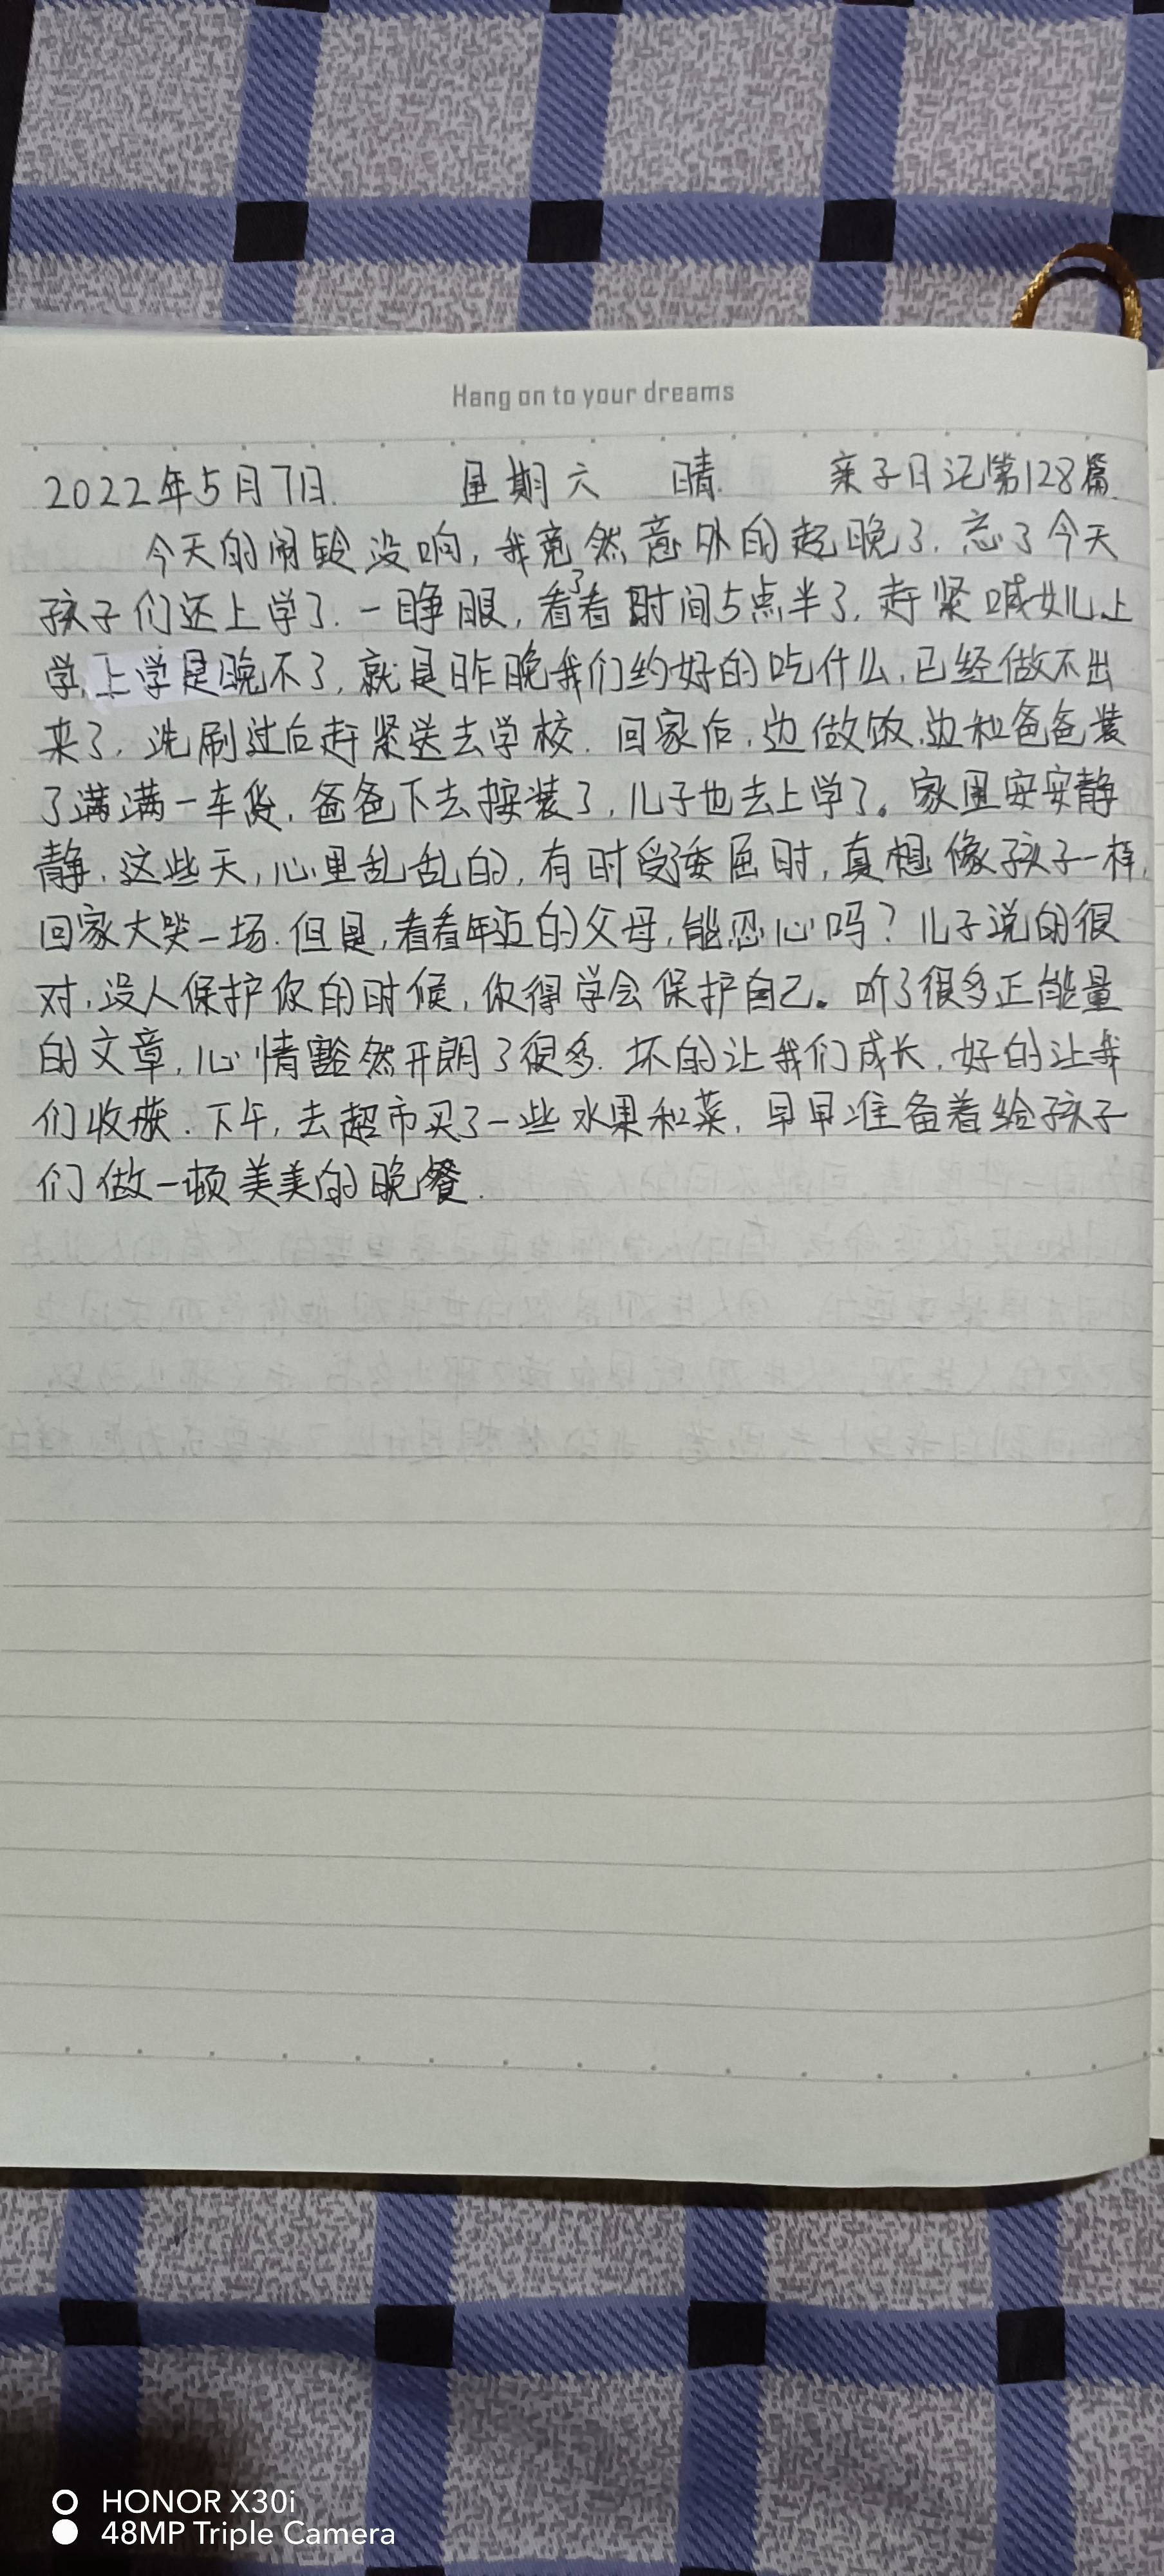 Hang on to your dreams
2022年5月7日. 星期六 晴. 亲子日记第128篇.
今天的闹铃没响,我竟然意外的起晚了.忘了今天
孩子们还上学了.一睁眼,看了看时间5点半了.赶紧喊女儿上
学,上学是晚不了,就是昨晚我们约好的吃什么,已经做不出
来了.洗刷过后赶紧送去学校.回家后,边做饭,边和爸爸装
了满满一车货,爸爸下去按装了,儿子也去上学了。家里安安静
静.这些天,心里乱乱的,有时受委屈时,真想像孩子一样,
回家大哭一场.但是,看看年迈的父母,能忍心吗?儿子说的很
对,没人保护你的时候,你得学会保护自己。听了很多正能量
的文章,心情豁然开朗了很多.坏的让我们成长,好的让我
们收获.下午,去超市买了一些水果和菜,早早准备着给孩子
们做一顿美美的晚餐.
HONOR X30i
48MP Triple Camera